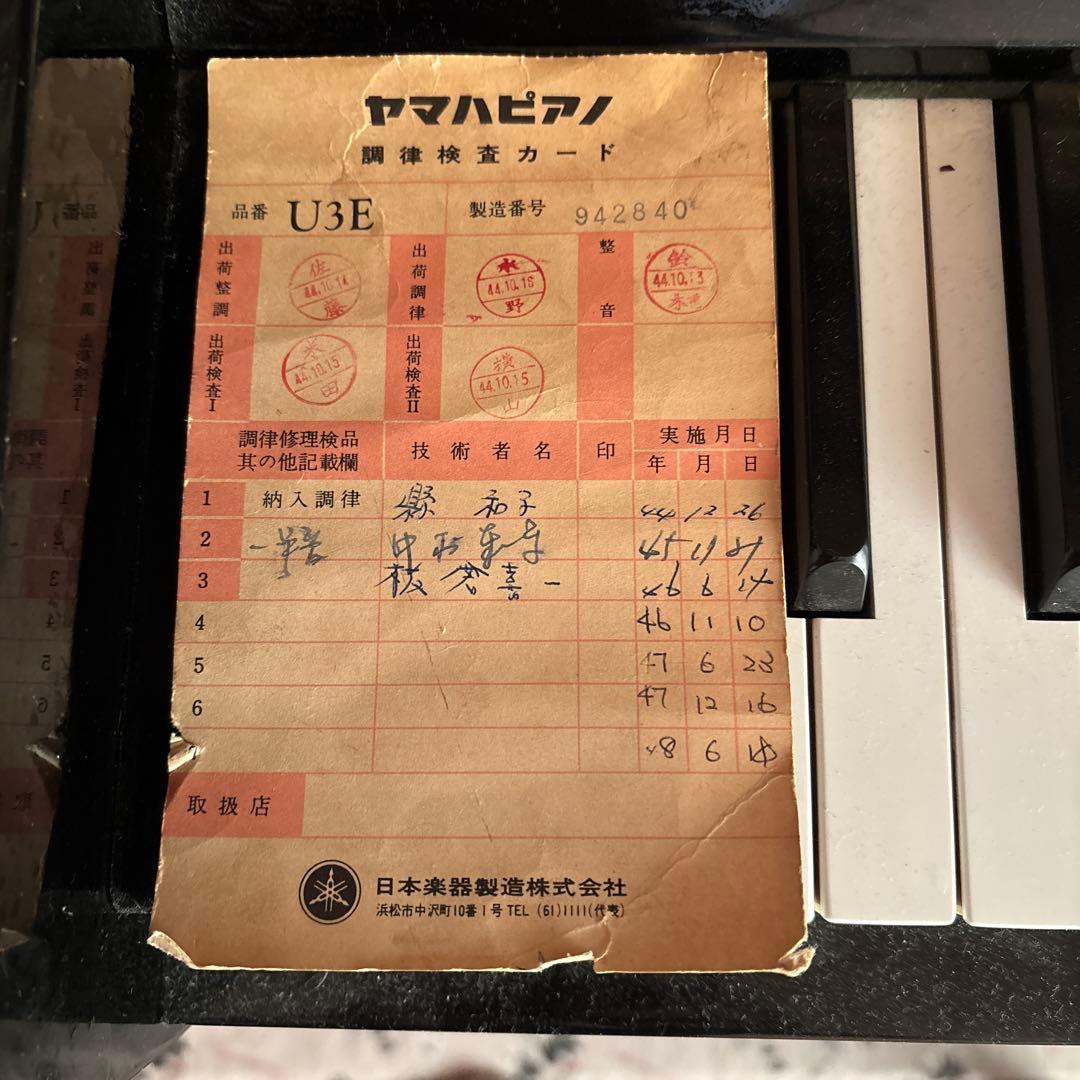 ヤマハピアノ
調律検査カード
品番 U3E 製造番号 942840
出荷整調 佐藤 44.10.14 出荷調律 水野 44.10.16 整音 鈴木 44.10.13
出荷検査I 米田 44.10.15 出荷検査II 横山 44.10.15
調律修理検品 其の他記載欄 技術者名 印 実施月日
年 月 日
1 納入調律 和子 44 12 26
2 中村 45 11
3 板倉喜一 46 6 14
4 46 11 10
5 47 6 23
6 47 12 16
48 6 14
取扱店
日本楽器製造株式会社
浜松市中沢町10番1号 TEL (61)1111(代表)